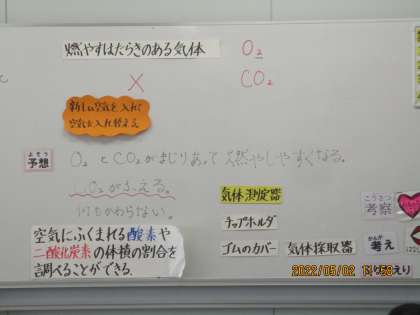 燃やすはたらきのある気体 O₂
X CO₂
新しい空気を入れて
空気を入れ替える
よそう
予想 O₂とCO₂がまじりあって燃やしやすくなる。
CO₂がふえる。
何もかわらない。
気体測定器
チップホルダ
ゴムのカバー 気体採取器
空気にふくまれる酸素や
二酸化炭素の体積の割合を
調べることができる。
こうさつ
考察
かんが
考え
ふりかえり
2022/05/02 11:58